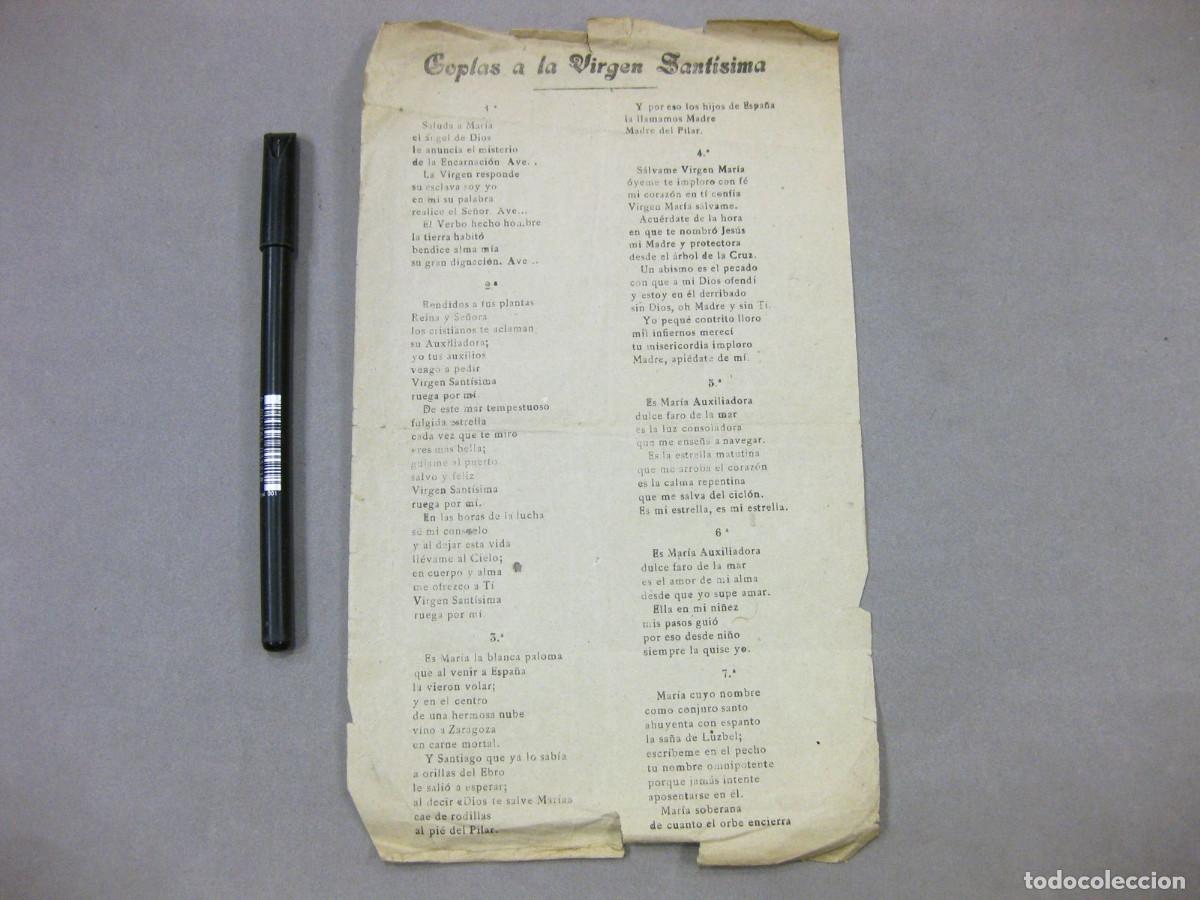 Coplas a la Virgen Santísima
1.ª
Saluda a María
el árgel de Dios
le anuncia el misterio
de la Encarnación. Ave. .
La Virgen responde
su esclava soy yo
en mi su palabra
realice el Señor. Ave...
El Verbo hecho hombre
la tierra habitó
bendice alma mía
su gran dignación. Ave ..
2.ª
Rendidos a tus plantas
Reina y Señora
los cristianos te aclaman
su Auxiliadora;
yo tus auxilios
vengo a pedir
Virgen Santísima
ruega por mí
De este mar tempestuoso
fúlgida estrella
cada vez que te miro
eres más bella;
guíame al puerto
salvo y feliz
Virgen Santísima
ruega por mí.
En las horas de la lucha
sé mi consuelo
y al dejar esta vida
llévame al Cielo;
en cuerpo y alma
me ofrezco a Tí
Virgen Santísima
ruega por mí.
3.ª
Es María la blanca paloma
que al venir a España
la vieron volar;
y en el centro
de una hermosa nube
vino a Zaragoza
en carne mortal.
Y Santiago que ya lo sabía
a orillas del Ebro
le salió a esperar;
al decir «Dios te salve María»
cae de rodillas
al pié del Pilar.
Y por eso los hijos de España
la llamamos Madre
Madre del Pilar.
4.ª
Sálvame Virgen María
óyeme te imploro con fé
mi corazón en tí confía
Virgen María sálvame.
Acuérdate de la hora
en que te nombró Jesús
mi Madre y protectora
desde el árbol de la Cruz.
Un abismo es el pecado
con que a mi Dios ofendí
y estoy en él derribado
sin Dios, oh Madre y sin Ti.
Yo pequé contrito lloro
mil infiernos merecí
tu misericordia imploro
Madre, apiédate de mí.
5.ª
Es María Auxiliadora
dulce faro de la mar
es la luz consoladora
que me enseña a navegar.
Es la estrella matutina
que me arroba el corazón
es la calma repentina
que me salva del ciclón.
Es mi estrella, es mi estrella.
6ª
Es María Auxiliadora
dulce faro de la mar
es el amor de mi alma
desde que yo supe amar.
Ella en mi niñez
mis pasos guió
por eso desde niño
siempre la quise yo.
7.ª
María cuyo nombre
como conjuro santo
ahuyenta con espanto
la saña de Lúzbel;
escríbeme en el pecho
tu nombre omnipotente
porque jamás intente
aposentarse en él.
María soberana
de cuanto el orbe encierra
001
todocoleccion